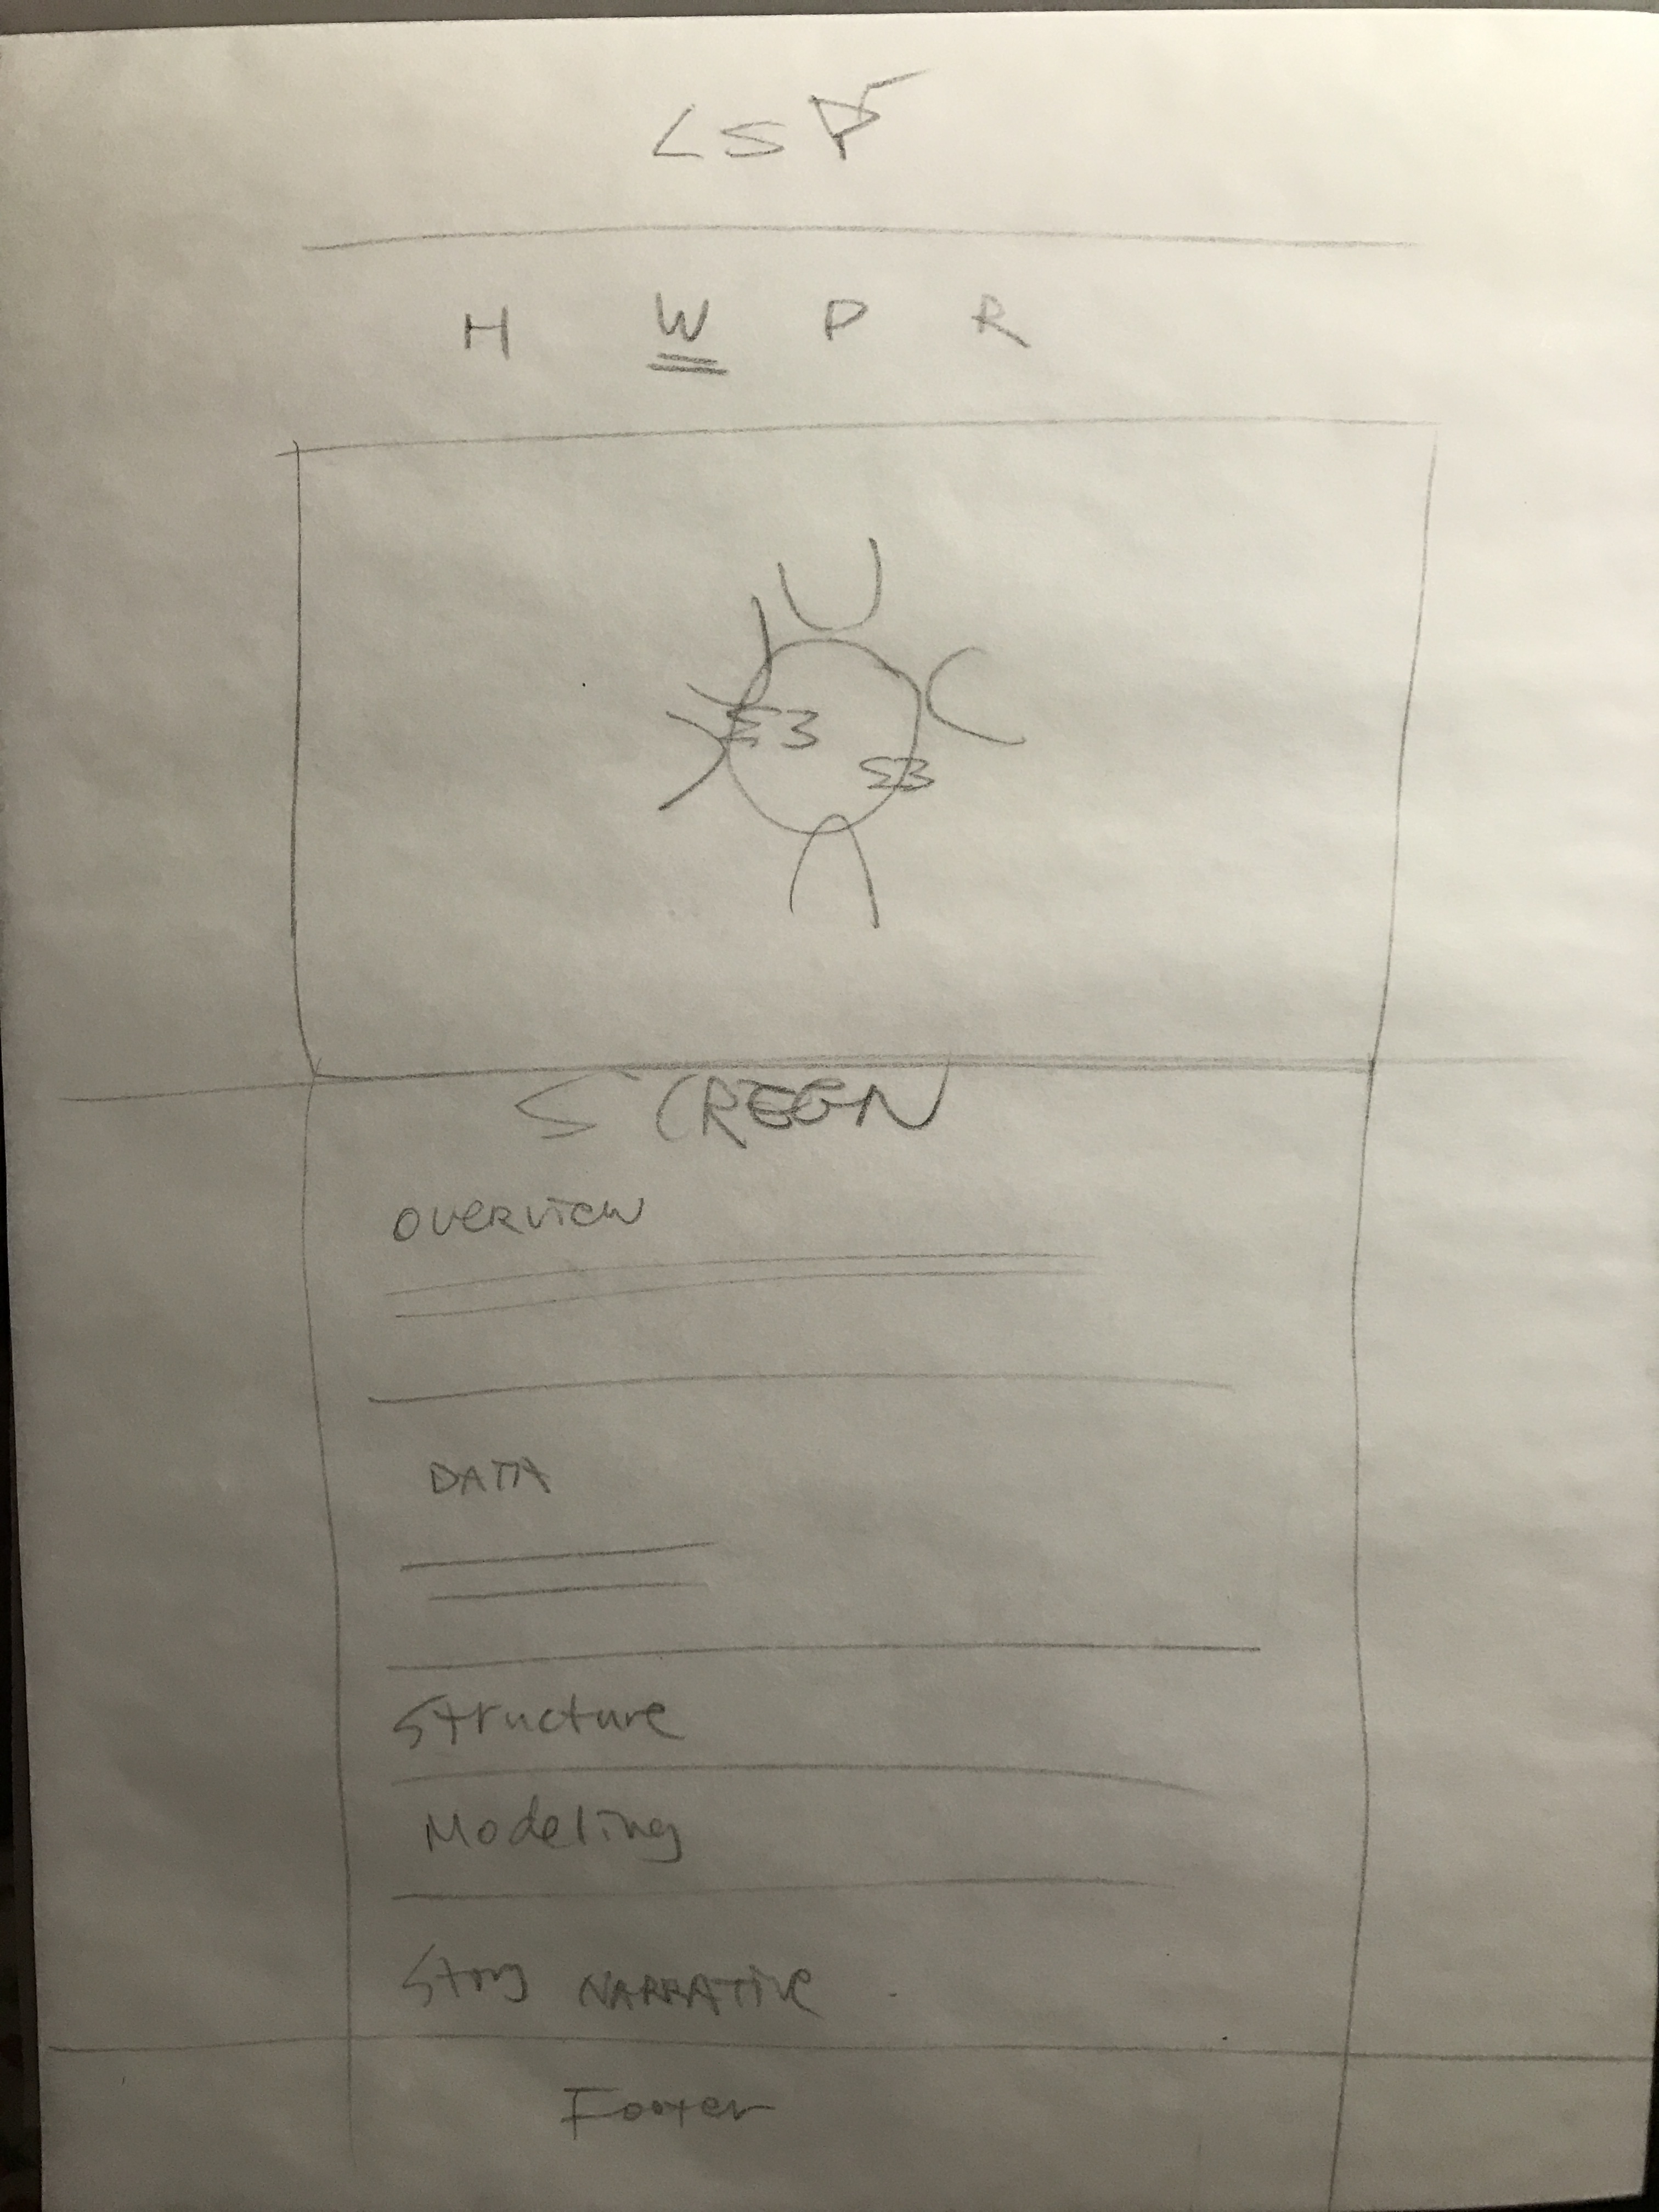 LSP
H W P R
Σ3
Σ3
SCREEN
OVERVIEW
DATA
Structure
Modeling
Story NARRATIVE
Footer